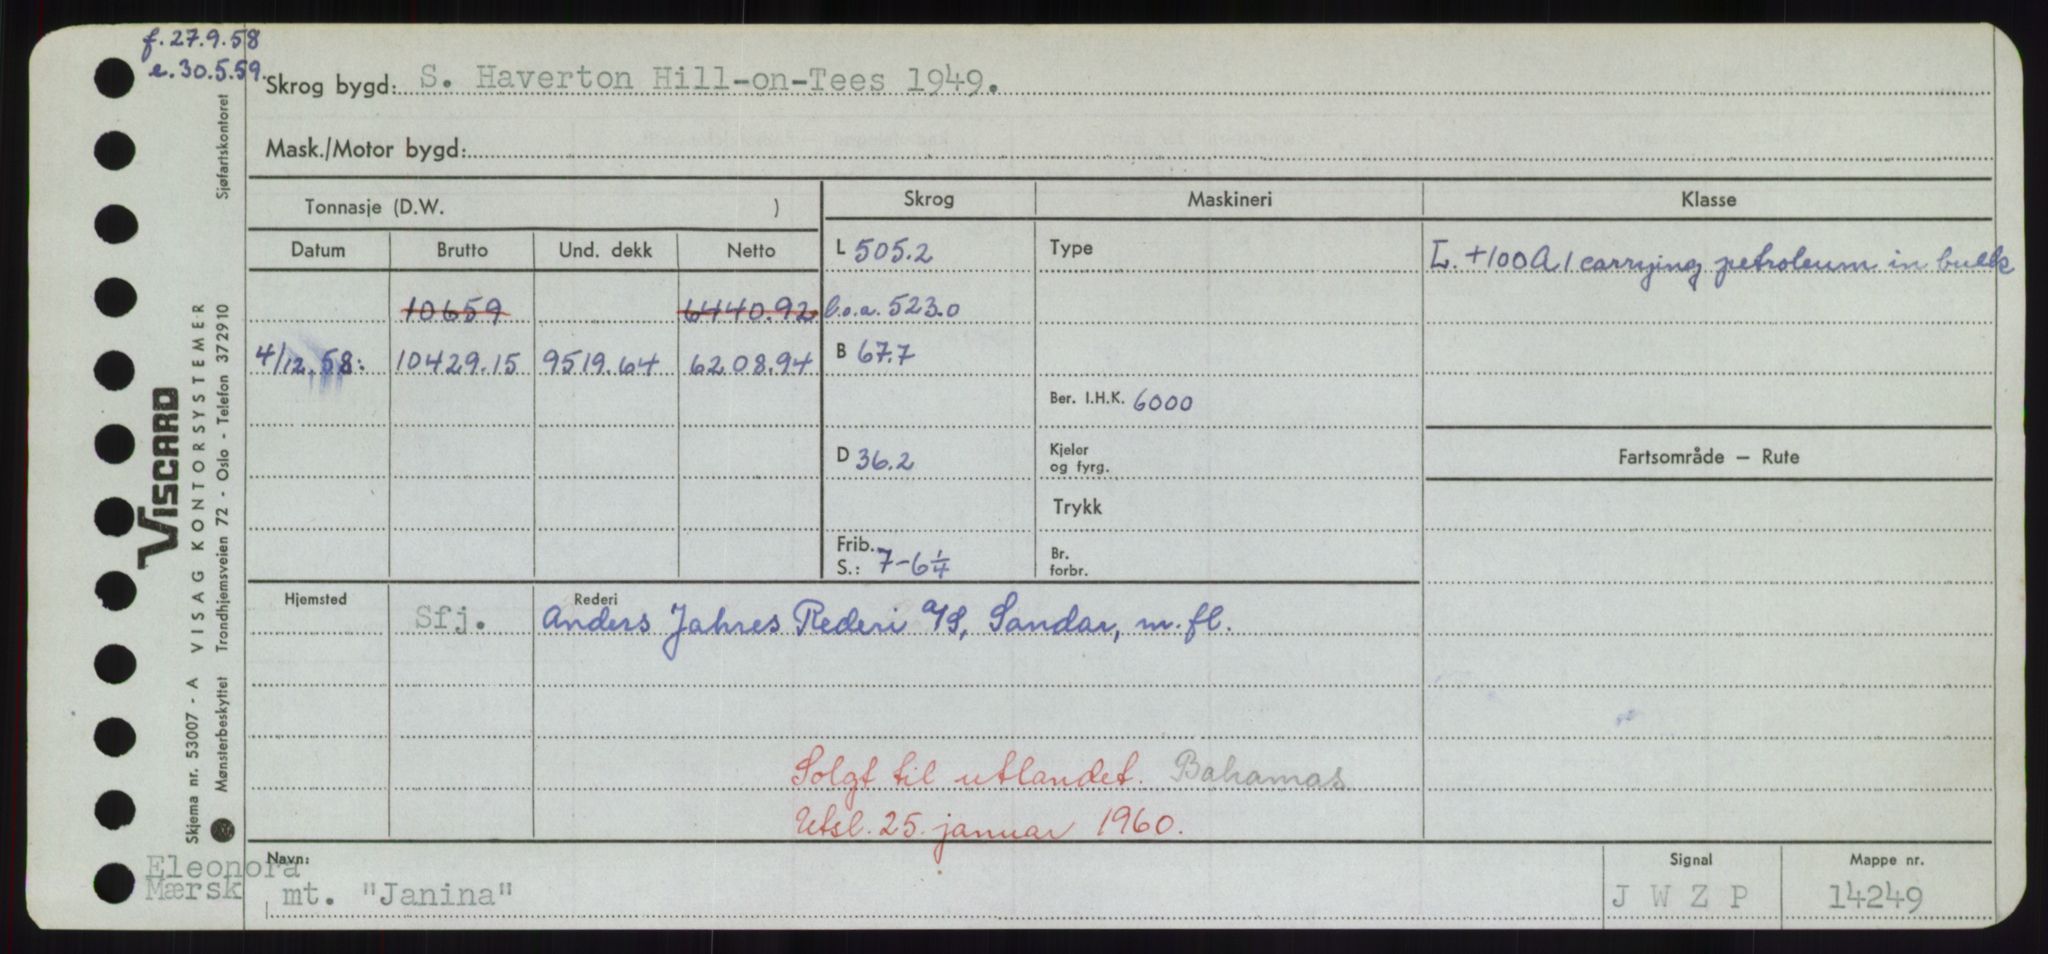 f. 27.9.58
e. 30.5.59.
Skrog bygd: S. Haverton Hill-on-Tees 1949.
Mask./Motor bygd:
Tonnasje (D.W. )
Skrog
Maskineri
Klasse
Datum
Brutto
Und. dekk
Netto
L 505.2
Type
L. +100A1 carrying petroleum in bulk
10659
6440.92
l.o.a. 523.0
4/12.58:
10429.15
9519.64
6208.94
B 67.7
Ber. I.H.K. 6000
D 36.2
Kjeler
og fyrg.
Fartsområde — Rute
Trykk
Frib.
S.: 7-6¼
Br.
forbr.
Hjemsted
Sfj.
Rederi
Anders Jahres Rederi A/S, Sandar, m.fl.
Solgt til utlandet. Bahamas
Utsl. 25. januar 1960.
Eleonora
Mærsk
Navn:
mt. "Janina"
Signal
J W Z P
Mappe nr.
14249
VISCARD
Skjema nr. 53007 - A VISAG KONTORSYSTEMER
Mønsterbeskyttet Trondhjemsveien 72 - Oslo - Telefon 372910
Sjøfartskontoret